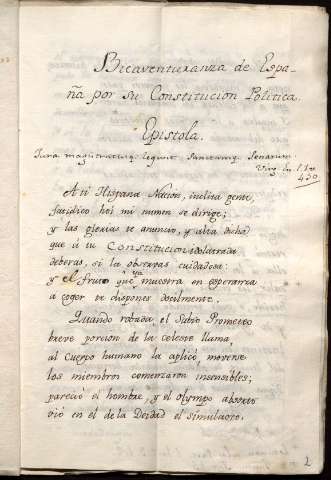 Bicaventuranza de Espa-
ña por su Constitucion Politica.
Epistola.
Jura magistratusq. legunt Sanctumq. Senatum.
Virg. En. l. 1. v.
430.
A ti Hispana Nacion, inclita gente,
fatidico hoi mi numen se dirige;
y las glorias te anuncio, y alta dicha
que á tu Constitucion idolatrada
deberas, si la observas cuidadosa:
y el fruto qe. ya muestra en esperanza
a coger te dispones docilmente.
Quando robada el Sabio Prometeo
breve porcion de la celeste llama,
al Cuerpo humano la aplicó, moverse
los miembros comenzaron insensibles;
pareció el hombre, y el olympo absorto
vió en el de la Deidad el simulacro.
2